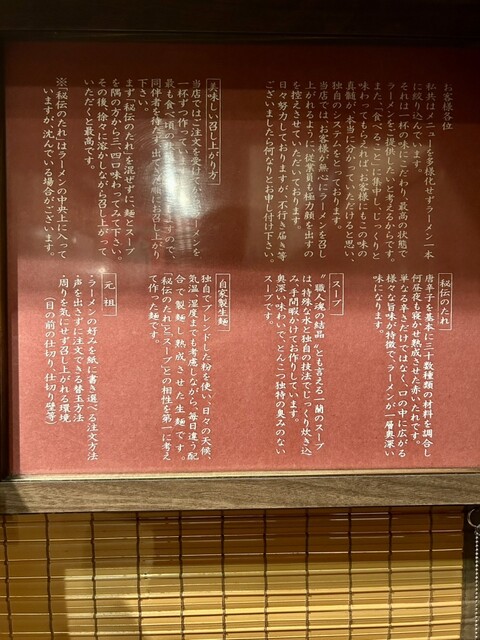 お客様各位
私共はメニューを多様化せずラーメン一本
に絞り込んでいます。
それは一杯の味にこだわり、最高の状態で
ラーメンをご提供したいと考えるからです。
また、食べることに集中し、じっくりと
味わってもらえれば、お客様にもこの味の
真髄が、本当に分かっていただけると思い、
独自のシステムをとっております。
当店では、お客様が無心にラーメンを召し
上がれるように、従業員も極力顔を出すの
を控えさせていただいております。
日々努力しておりますが、不行き届き等
ございましたら何なりとお申し付け下さい。
美味しい召し上がり方
当店ではご注文を受けてからラーメンを
一杯ずつ作って
最も食べ頃の
ますので、
同伴者を待たず、出てきた順に召し上がり
下さい。
まず「秘伝のたれ」を混ぜずに、麺とスープ
を隅の方から三、四口味わってみて下さい。
その後、徐々に溶かしながら召し上がって
いただくと最高です。
※「秘伝のたれ」はラーメンの中央上に入って
いますが、沈んでいる場合がございます。
秘伝のたれ
唐辛子を基本に三十数種類の材料を調合し
何昼夜も寝かせ熟成させた赤いたれです。
単なる辛さだけではなく、口の中に広がる
様々な旨味が特徴で、ラーメンが一層奥深い
味になります。
スープ
〝職人魂の結晶〟とも言える一蘭のスープ
は、特殊な水と独自の技法でじっくり炊き込
み、手間暇かけてお作りしています。
奥深い味わいで、とんこつ独特の臭みのない
スープです。
自家製生麺
独自でブレンドした粉を使い、日々の天候、
気温、湿度までも考慮しながら、毎日違う配
合で製麺し熟成させた生麺です。
「秘伝のたれ」とスープとの相性を第一に考え
て作った麺です。
元祖
・ラーメンの好みを紙に書き選べる注文方法
・声を出さずに注文できる替玉方法
・周りを気にせず召し上がれる環境
(目の前の仕切り、仕切り壁等)